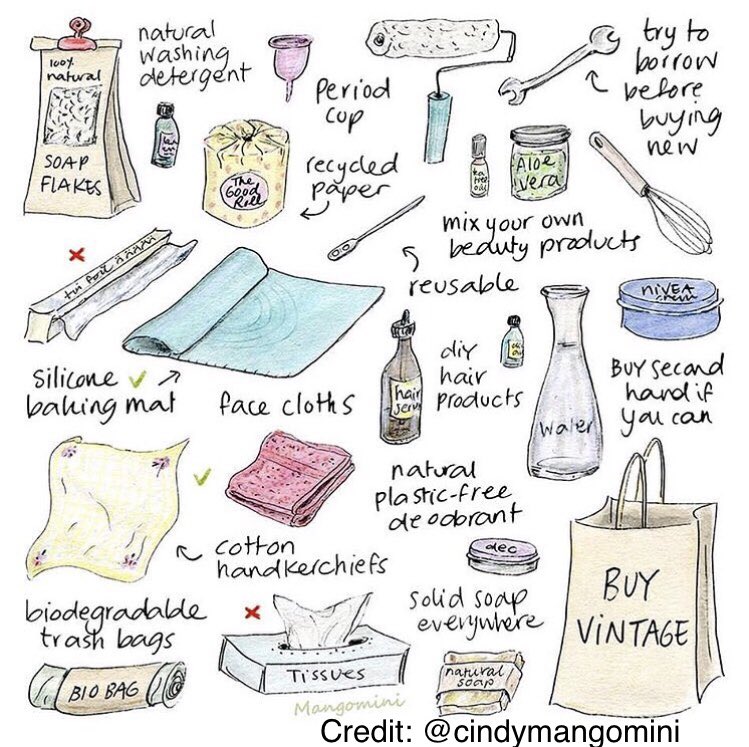 100% natural
SOAP
FLAKES
natural
washing
detergent
Period
cup
try to
borrow
before
buying
new
The
Good
Roll
recycled
paper
tea
tree
oil
Aloe
vera
mix your own
beauty products
reusable
tin foil
silicone
baking mat
face cloths
hair
diy
hair
products
water
NIVEA
Buy second
hand if
you can
natural
plastic-free
deodorant
deo
cotton
handkerchiefs
solid soap
everywhere
natural
soap
BUY
VINTAGE
biodegradable
trash bags
BIO BAG
TISSUES
Mangomini
Credit: @cindymangomini